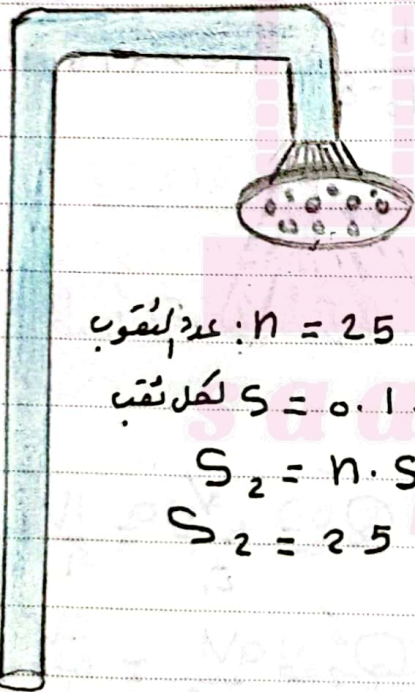 عدد الثقوب: n = 25
لكل ثقب S = 0.1
S₂ = n · S
S₂ = 25